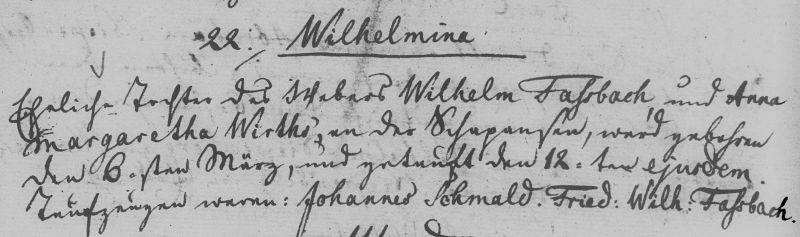 22. Wilhelmina
Eheliche Tochter des Webers Wilhelm Fassbach, und Anna
Margaretha Wirths, an der, ward gebohren
den 6-sten März, und getauft den 12-ten ejusdem.
Taufzeugen waren: Johannes Schmald. Fried: Wilh: Fassbach.